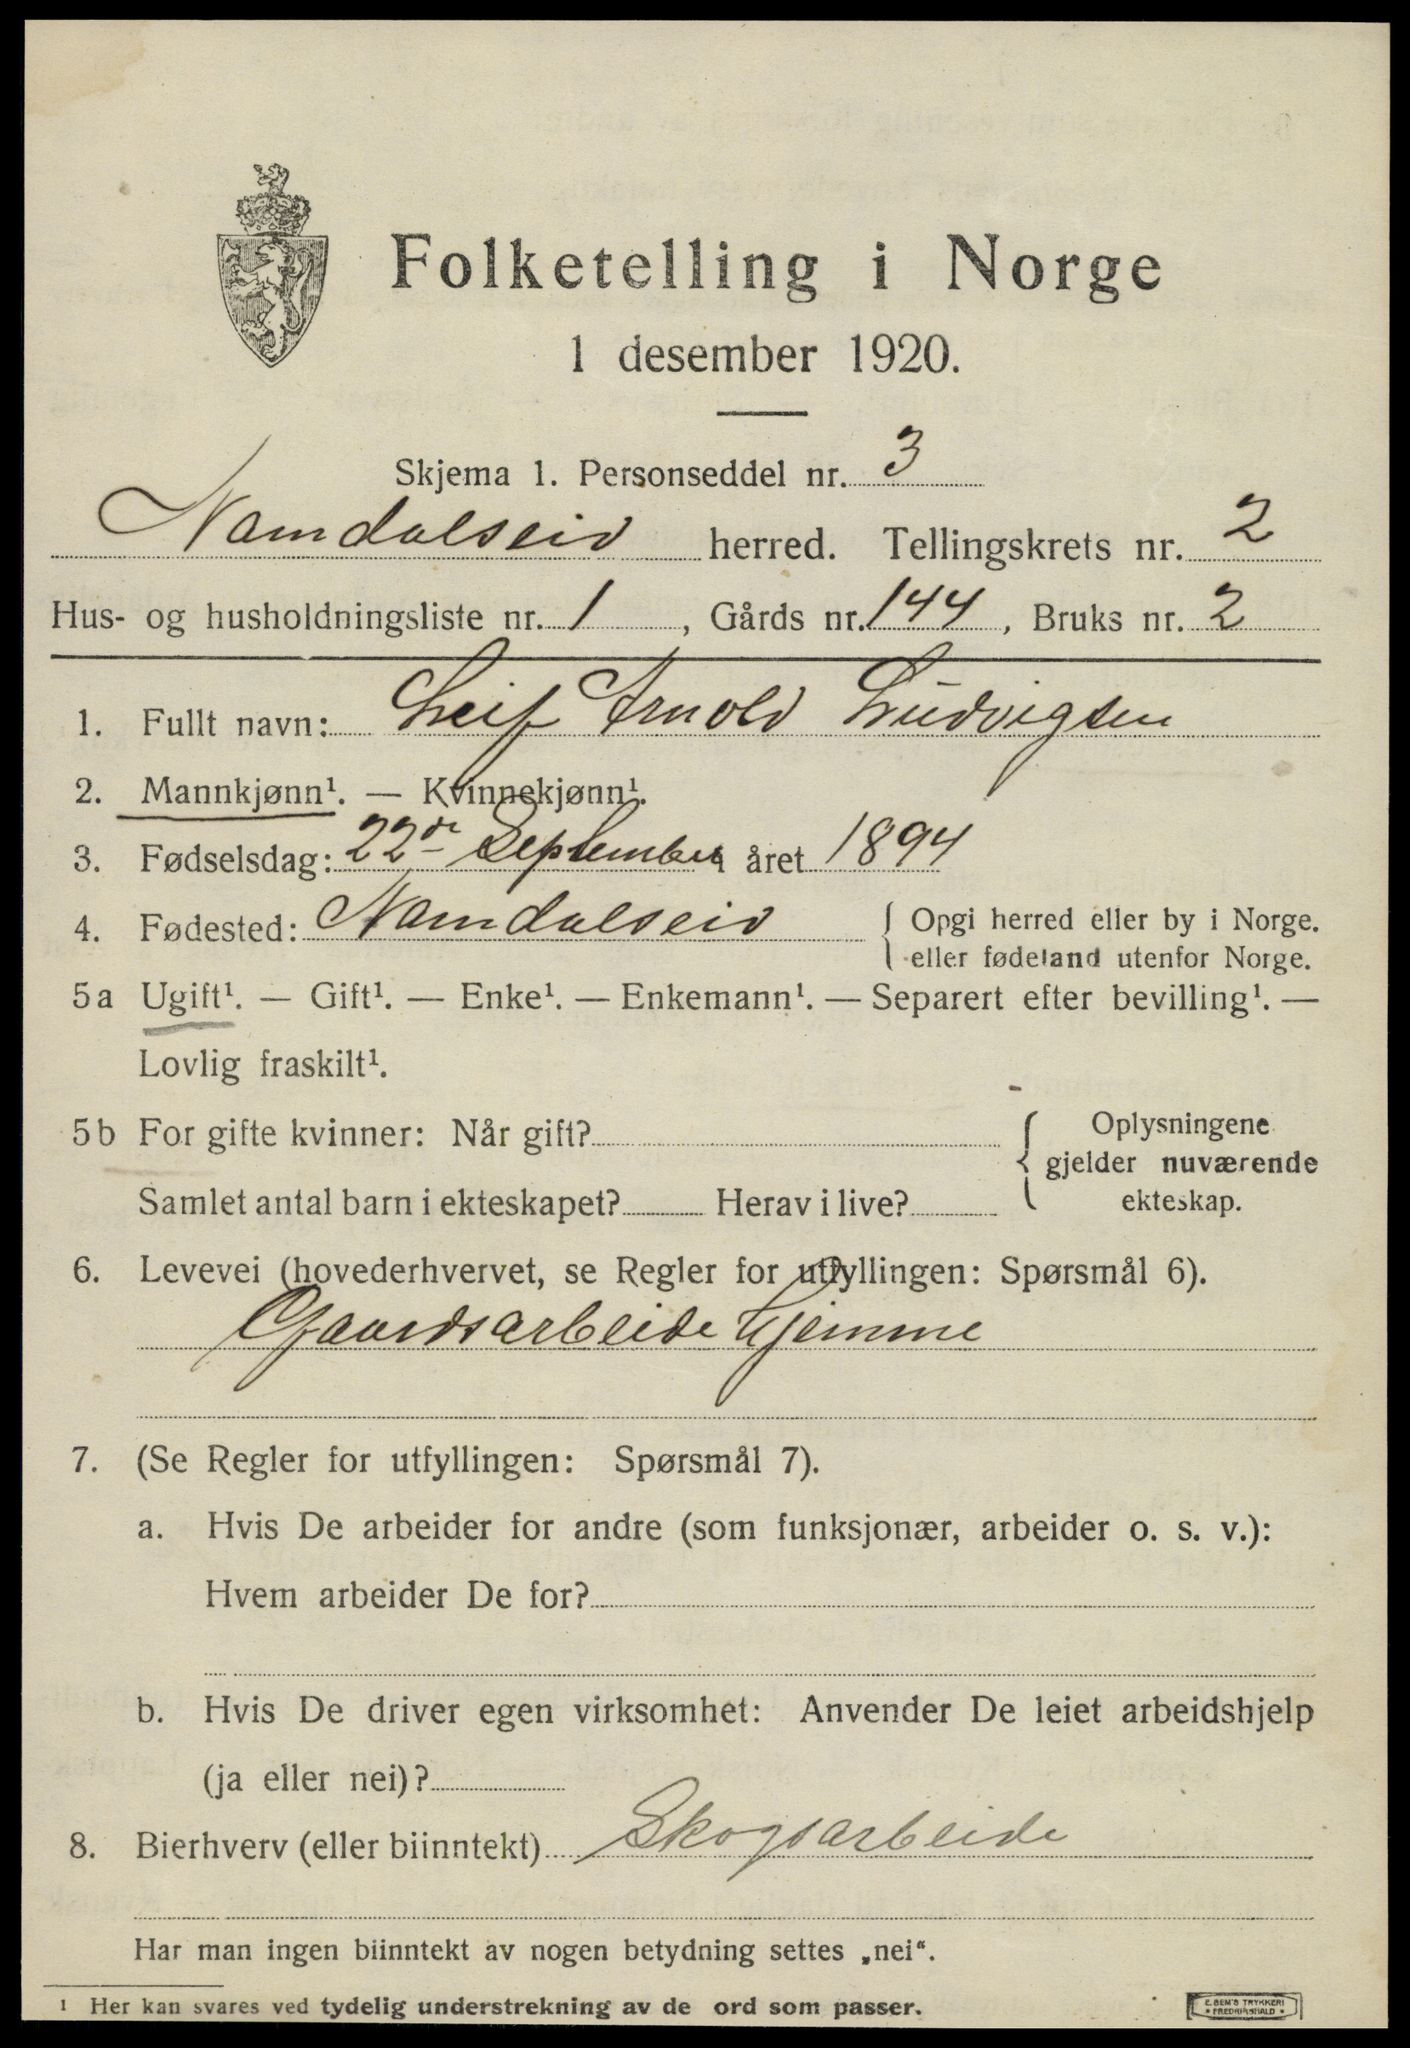 Folketelling i Norge
1 desember 1920.
Skjema 1. Personseddel nr. 3
Namdalseid herred. Tellingskrets nr. 2
Hus- og husholdningsliste nr. 1, Gårds nr. 144, Bruks nr. 2
1. Fullt navn: Leif Arnold Ludvigsen
2. Mannkjønn¹. — Kvinnekjønn¹.
3. Fødselsdag: 22de September året 1894
4. Fødested: Namdalseid { Opgi herred eller by i Norge.
eller fødeland utenfor Norge.
5a Ugift¹. — Gift¹. — Enke¹. — Enkemann¹. — Separert efter bevilling¹. —
Lovlig fraskilt¹.
5b For gifte kvinner: Når gift? { Oplysningene
gjelder nuværende
ekteskap.
Samlet antal barn i ekteskapet? Herav i live?
6. Levevei (hovederhvervet, se Regler for utfyllingen: Spørsmål 6).
Gaardsarbeide hjemme
7. (Se Regler for utfyllingen: Spørsmål 7).
a. Hvis De arbeider for andre (som funksjonær, arbeider o. s. v.):
Hvem arbeider De for?
b. Hvis De driver egen virksomhet: Anvender De leiet arbeidshjelp
(ja eller nei)?
8. Bierhverv (eller biinntekt) Skogsarbeide
Har man ingen biinntekt av nogen betydning settes „nei“.
¹ Her kan svares ved tydelig understrekning av de ord som passer.
E. SEM'S TRYKKERI
• FREDRIKSHALD •